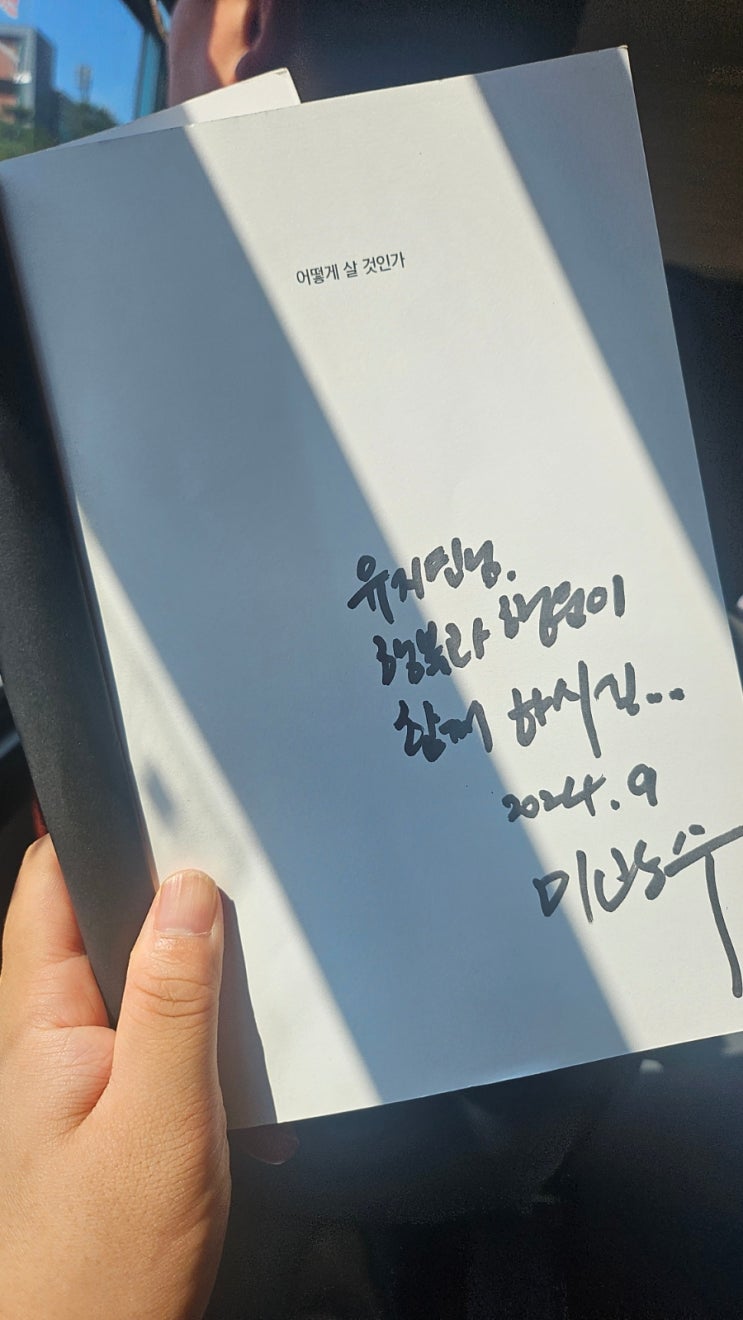 어떻게 살 것인가
유지민님.
행복과 행운이
함께 하시길..
2024. 9